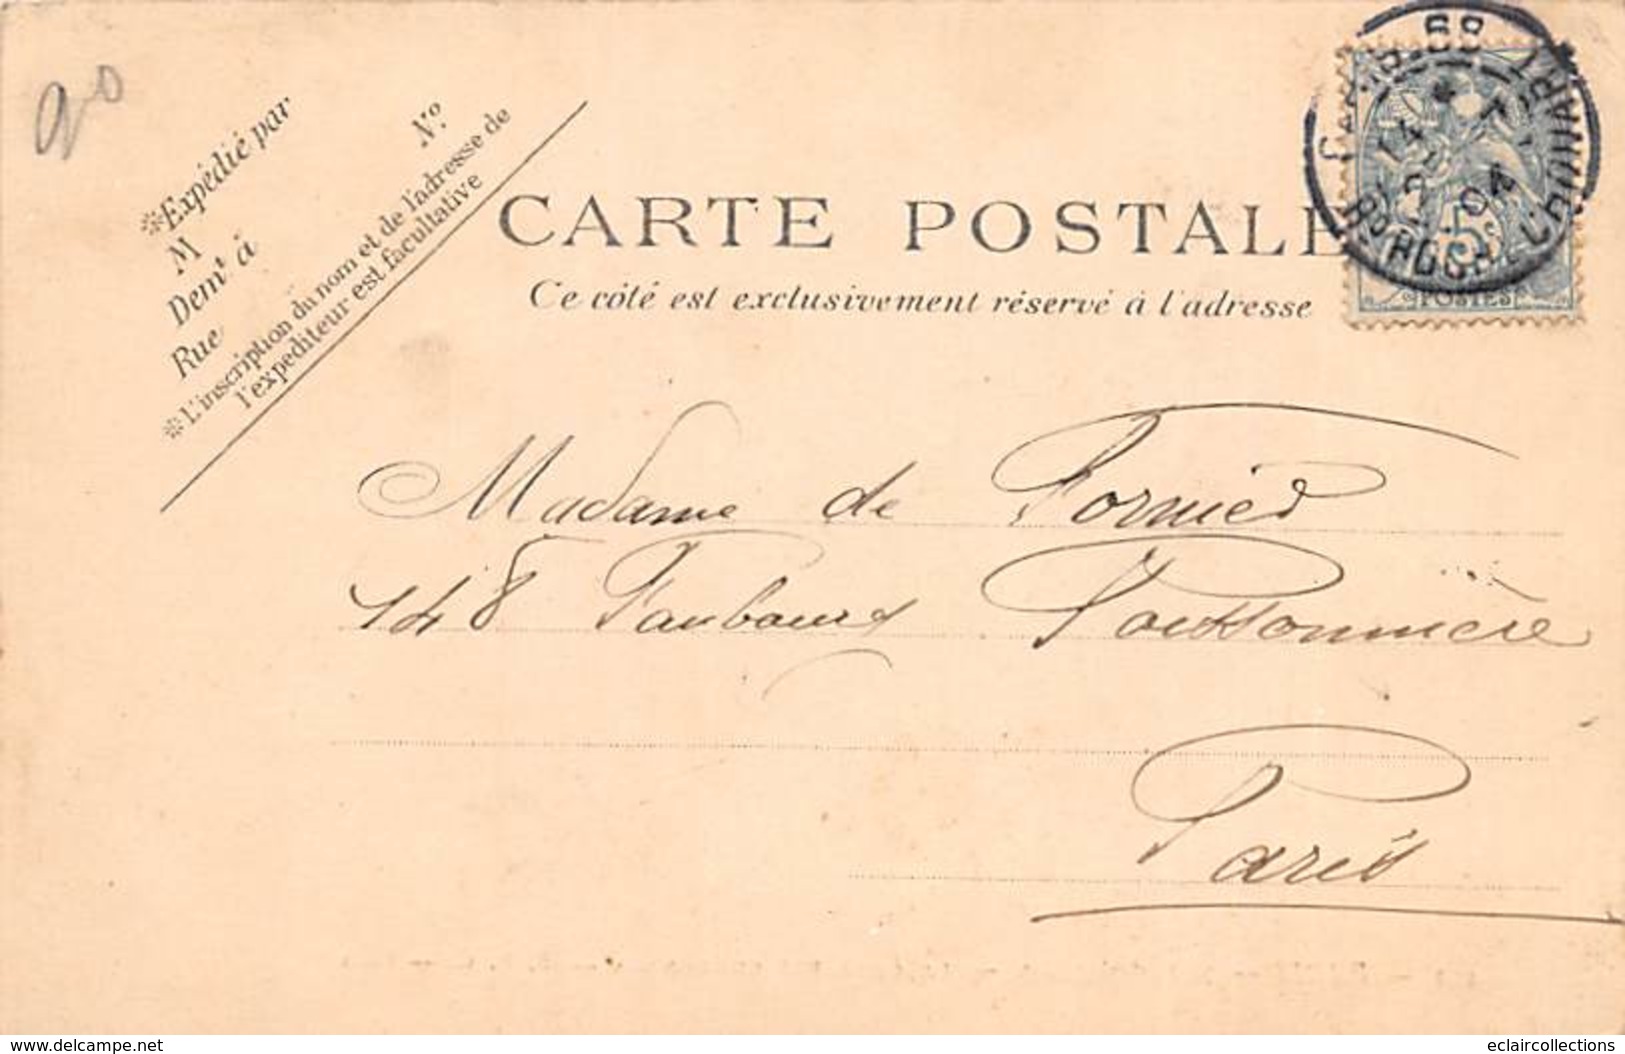 90
※Expédié par
M N°
Demt à
Rue
※L'inscription du nom et de l'adresse de
l'expéditeur est facultative
CARTE POSTALE
Ce côté est exclusivement réservé à l'adresse
PARIS
14
04
5
POSTES
Madame de Fornied
148 Faubourg Poissonnière
Paris
www.delcampe.net
eclaircollections